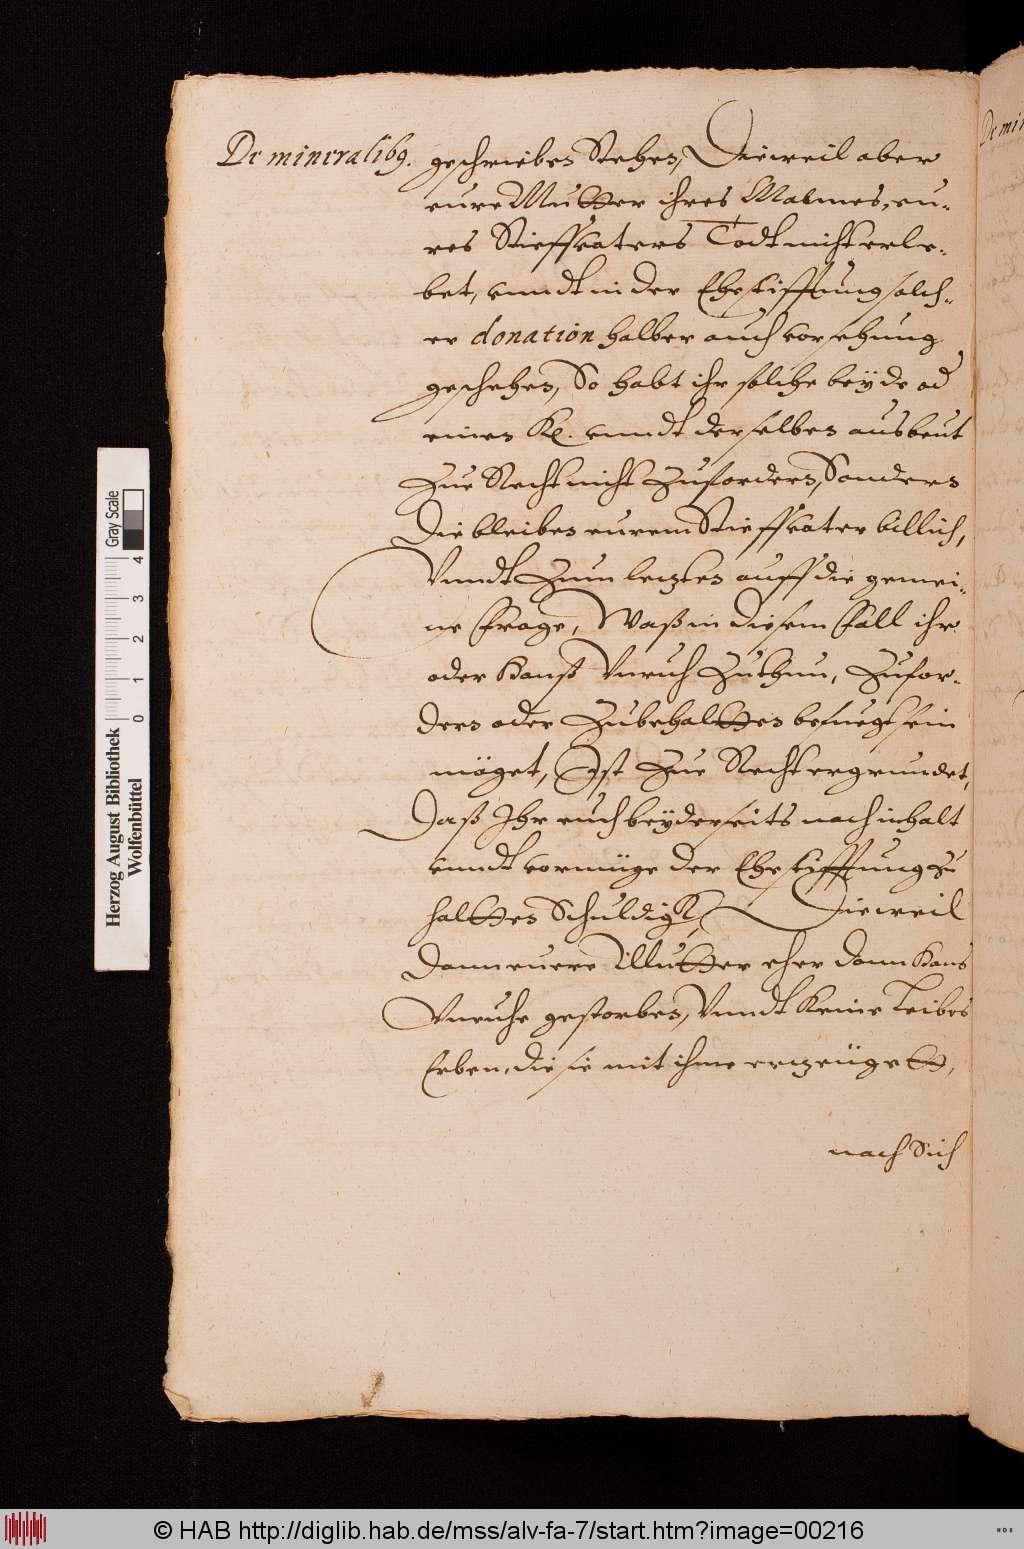 De mineralib9.
geschrieben Stehen, Dieweil aber
eure Mutter ihres Mannes, eu-
res Stieffvaters Todt nicht erle-
bet, vnndt in der Ehestifftung solch-
er donation halber auch vorsehung
geschehen, So habt ihr solche beyde od
einen Kux. vnndt derselben ausbeut
Zue Recht nicht Zufordern, Sondern
Die bleiben eurem Stieffvater billich,
Vnndt Zum letzten auff die gemei-
ne frage, Waß in diesem fall ihr
oder Hanß Vnruh Zuthun, Zufor-
dern oder Zubehaltten befuegt sein
möget, Ist Zue Recht ergrundet,
Daß Ihr euch beyderseits nach inhalt
vnndt vormüge der Ehestifftung zu
haltten Schuldig, Dieweil
Dann euere Mutter eher dann Hans
Vnruhe gestorben, Vnndt Keine Leibes
Erben, die sie mit ihme erzeügett,
nach Sich
De min
Herzog August Bibliothek
Wolfenbüttel
0 1 2 3 4
Gray Scale
© HAB http://diglib.hab.de/mss/alv-fa-7/start.htm?image=00216